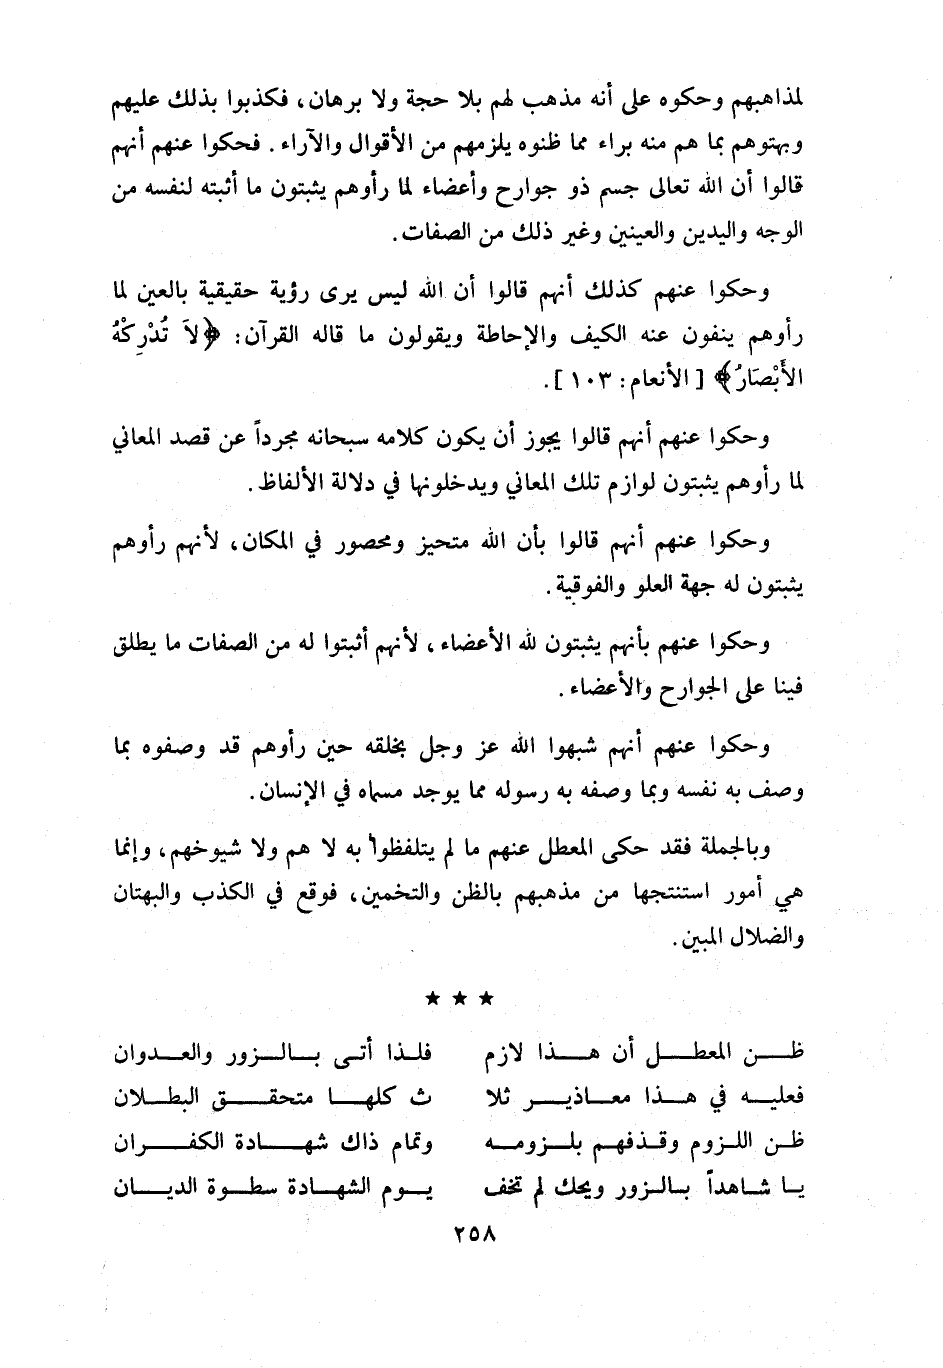 لمذاهبهم وحكوه على أنه مذهب لهم بلا حجة ولا برهان، فكذبوا بذلك عليهم
وبهتوهم بما هم منه براء مما ظنوه يلزمهم من الأقوال والآراء. فحكوا عنهم أنهم
قالوا أن الله تعالى جسم ذو جوارح وأعضاء لما رأوهم يثبتون ما أثبته لنفسه من
الوجه واليدين والعينين وغير ذلك من الصفات.
وحكوا عنهم كذلك أنهم قالوا أن الله ليس يرى رؤية حقيقية بالعين لما
رأوهم ينفون عنه الكيف والإحاطة ويقولون ما قاله القرآن: ﴿لاَ تُدْرِكُهُ
الأَبْصَارُ﴾ [الأنعام: ١٠٣].
وحكوا عنهم أنهم قالوا يجوز أن يكون كلامه سبحانه مجرداً عن قصد المعاني
لما رأوهم يثبتون لوازم تلك المعاني ويدخلونها في دلالة الألفاظ.
وحكوا عنهم أنهم قالوا بأن الله متحيز ومحصور في المكان، لأنهم رأوهم
يثبتون له جهة العلو والفوقية.
وحكوا عنهم بأنهم يثبتون لله الأعضاء، لأنهم أثبتوا له من الصفات ما يطلق
فينا على الجوارح والأعضاء.
وحكوا عنهم أنهم شبهوا الله عز وجل بخلقه حين رأوهم قد وصفوه بما
وصف به نفسه وبما وصفه به رسوله مما يوجد مسماه في الإنسان.
وبالجملة فقد حكى المعطل عنهم ما لم يتلفظوا به لا هم ولا شيوخهم، وإنما
هي أمور استنتجها من مذهبهم بالظن والتخمين، فوقع في الكذب والبهتان
والضلال المبين.
★ ★ ★
ظن المعطل أن هذا لازم فلذا أتى بالزور والعدوان
فعليه في هذا معاذير ثلا ث كلها متحقق البطلان
ظن اللزوم وقذفهم بلزومه وتمام ذاك شهادة الكفران
يا شاهداً بالزور ويحك لم تخف يوم الشهادة سطوة الديان
٢٥٨